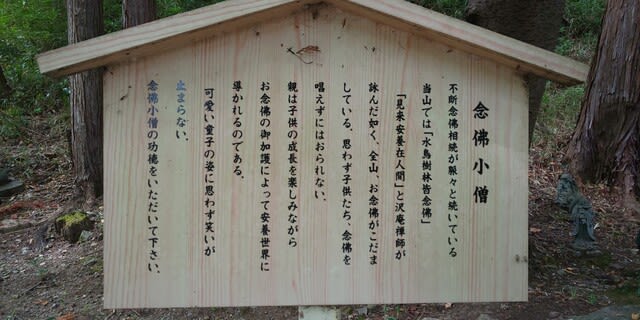 念佛小僧
不断念佛相続が脈々と続いている
当山では「水鳥樹林皆念佛」
「見来安養在人間」と沢庵禅師が
詠んだ如く、全山、お念佛がこだま
している。思わず子供たち、念佛を
唱えずにはおられない。
親は子供の成長を楽しみながら
お念佛の御加護によって安養世界に
導かれるのである。
可愛い童子の姿に思わず笑いが
止まらない。
念佛小僧の功徳をいただいて下さい。